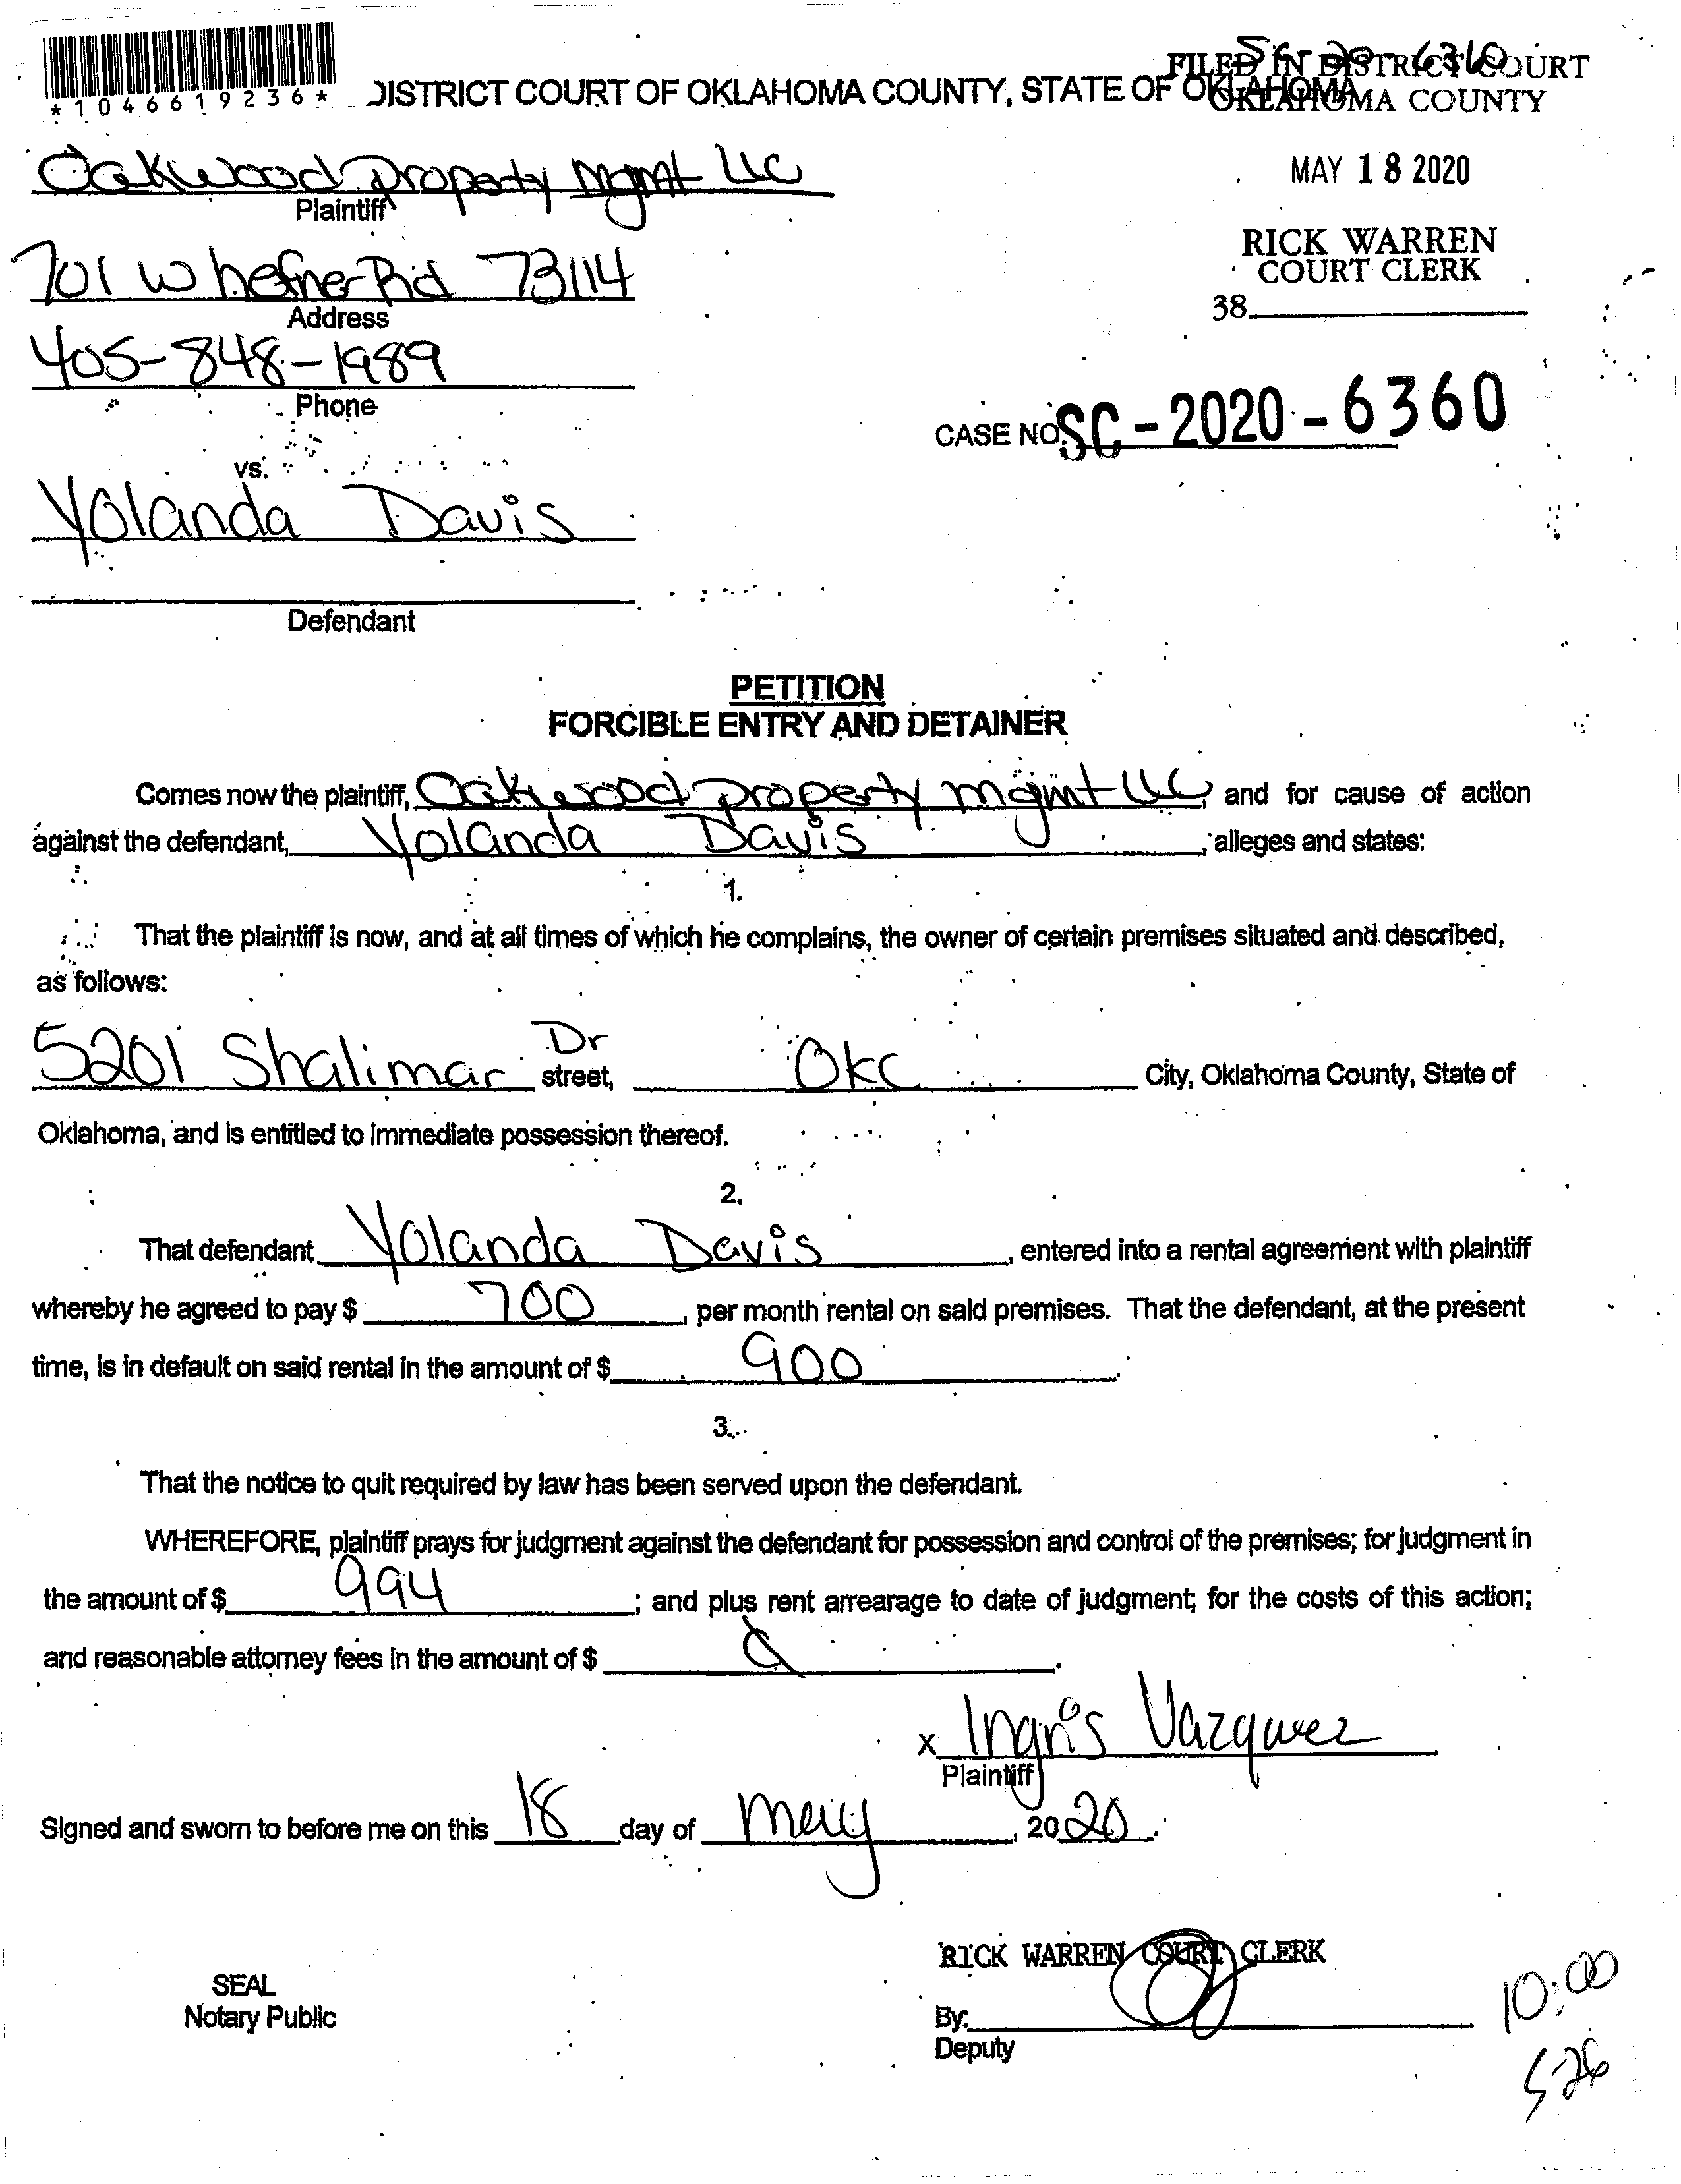 *1046619236*
DISTRICT COURT OF OKLAHOMA COUNTY, STATE OF OKLAHOMA
FILED IN DISTRICT COURT
OKLAHOMA COUNTY
Oakwood Property Mgmt LLC
Plaintiff
MAY 18 2020
701 W hefner Rd 73114
Address
RICK WARREN
COURT CLERK
38
405-848-1989
Phone
CASE NO. SC-2020-6360
vs.
Yolanda Davis
Defendant
PETITION
FORCIBLE ENTRY AND DETAINER
Comes now the plaintiff, Oakwood property mgmt LLC, and for cause of action
against the defendant, Yolanda Davis, alleges and states:
1.
That the plaintiff is now, and at all times of which he complains, the owner of certain premises situated and described,
as follows:
5201 Shalimar Dr street, OKC City, Oklahoma County, State of
Oklahoma, and is entitled to immediate possession thereof.
2.
That defendant Yolanda Davis, entered into a rental agreement with plaintiff
whereby he agreed to pay $ 700, per month rental on said premises. That the defendant, at the present
time, is in default on said rental in the amount of $ 900.
3.
That the notice to quit required by law has been served upon the defendant.
WHEREFORE, plaintiff prays for judgment against the defendant for possession and control of the premises; for judgment in
the amount of $ 994; and plus rent arrearage to date of judgment; for the costs of this action;
and reasonable attorney fees in the amount of $
x Ingris Vazquez
Plaintiff
Signed and sworn to before me on this 18 day of may, 2020.
RICK WARREN COURT CLERK
SEAL
Notary Public
By:
Deputy
10:00
5-26